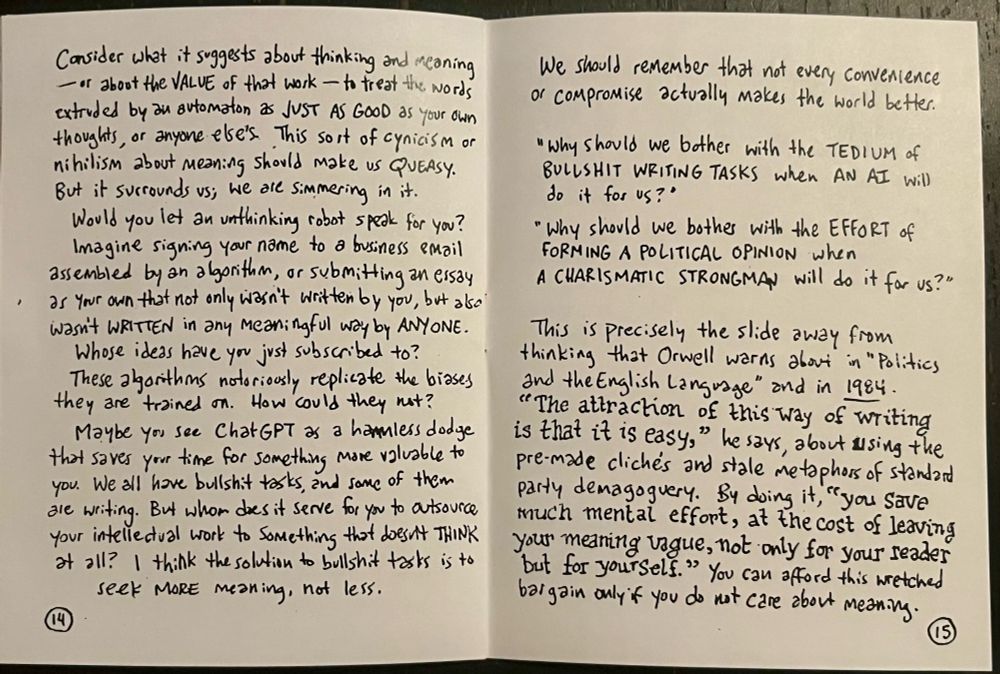 Consider what it suggests about thinking and meaning
— or about the VALUE of that work — to treat the words
extruded by an automaton as JUST AS GOOD as your own
thoughts, or anyone else's. This sort of cynicism or
nihilism about meaning should make us QUEASY.
But it surrounds us; we are simmering in it.
Would you let an unthinking robot speak for you?
Imagine signing your name to a business email
assembled by an algorithm, or submitting an essay
as your own that not only wasn't written by you, but also
wasn't WRITTEN in any meaningful way by ANYONE.
Whose ideas have you just subscribed to?
These algorithms notoriously replicate the biases
they are trained on. How could they not?
Maybe you see ChatGPT as a harmless dodge
that saves your time for something more valuable to
you. We all have bullshit tasks, and some of them
are writing. But whom does it serve for you to outsource
your intellectual work to something that doesn't THINK
at all? I think the solution to bullshit tasks is to
seek MORE meaning, not less.
14
We should remember that not every convenience
or compromise actually makes the world better.
"Why should we bother with the TEDIUM of
BULLSHIT WRITING TASKS when AN AI will
do it for us?"
"Why should we bother with the EFFORT of
FORMING A POLITICAL OPINION when
A CHARISMATIC STRONGMAN will do it for us?"
This is precisely the slide away from
thinking that Orwell warns about in "Politics
and the English Language" and in 1984.
"The attraction of this way of writing
is that it is easy," he says, about using the
pre-made clichés and stale metaphors of standard
party demagoguery. By doing it, "you save
much mental effort, at the cost of leaving
your meaning vague, not only for your reader
but for yourself." You can afford this wretched
bargain only if you do not care about meaning.
15